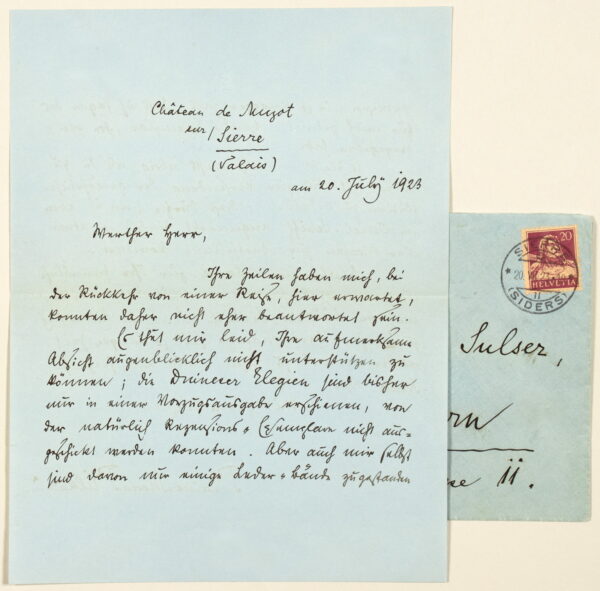 Château de Muzot
sur / Sierre
(Valais)
am 20. July 1923
Werther Herr,
Ihre Zeilen haben mich, bei
der Rückkehr von einer Reise, hier erwartet,
konnten daher nicht eher beantwortet sein.
Es thut mir leid, Ihre aufmerksame
Absicht augenblicklich nicht unterstützen zu
können; die Duineser Elegien sind bisher
nur in einer Vorzugsausgabe erschienen, von
der natürlich Rezensions-Exemplare nicht aus-
geschickt werden konnten. Aber auch mir selbst
sind davon nur einige Leder-Bände zugestanden
20
HELVETIA
(SIDERS)
Sulser,
rn
se 11.